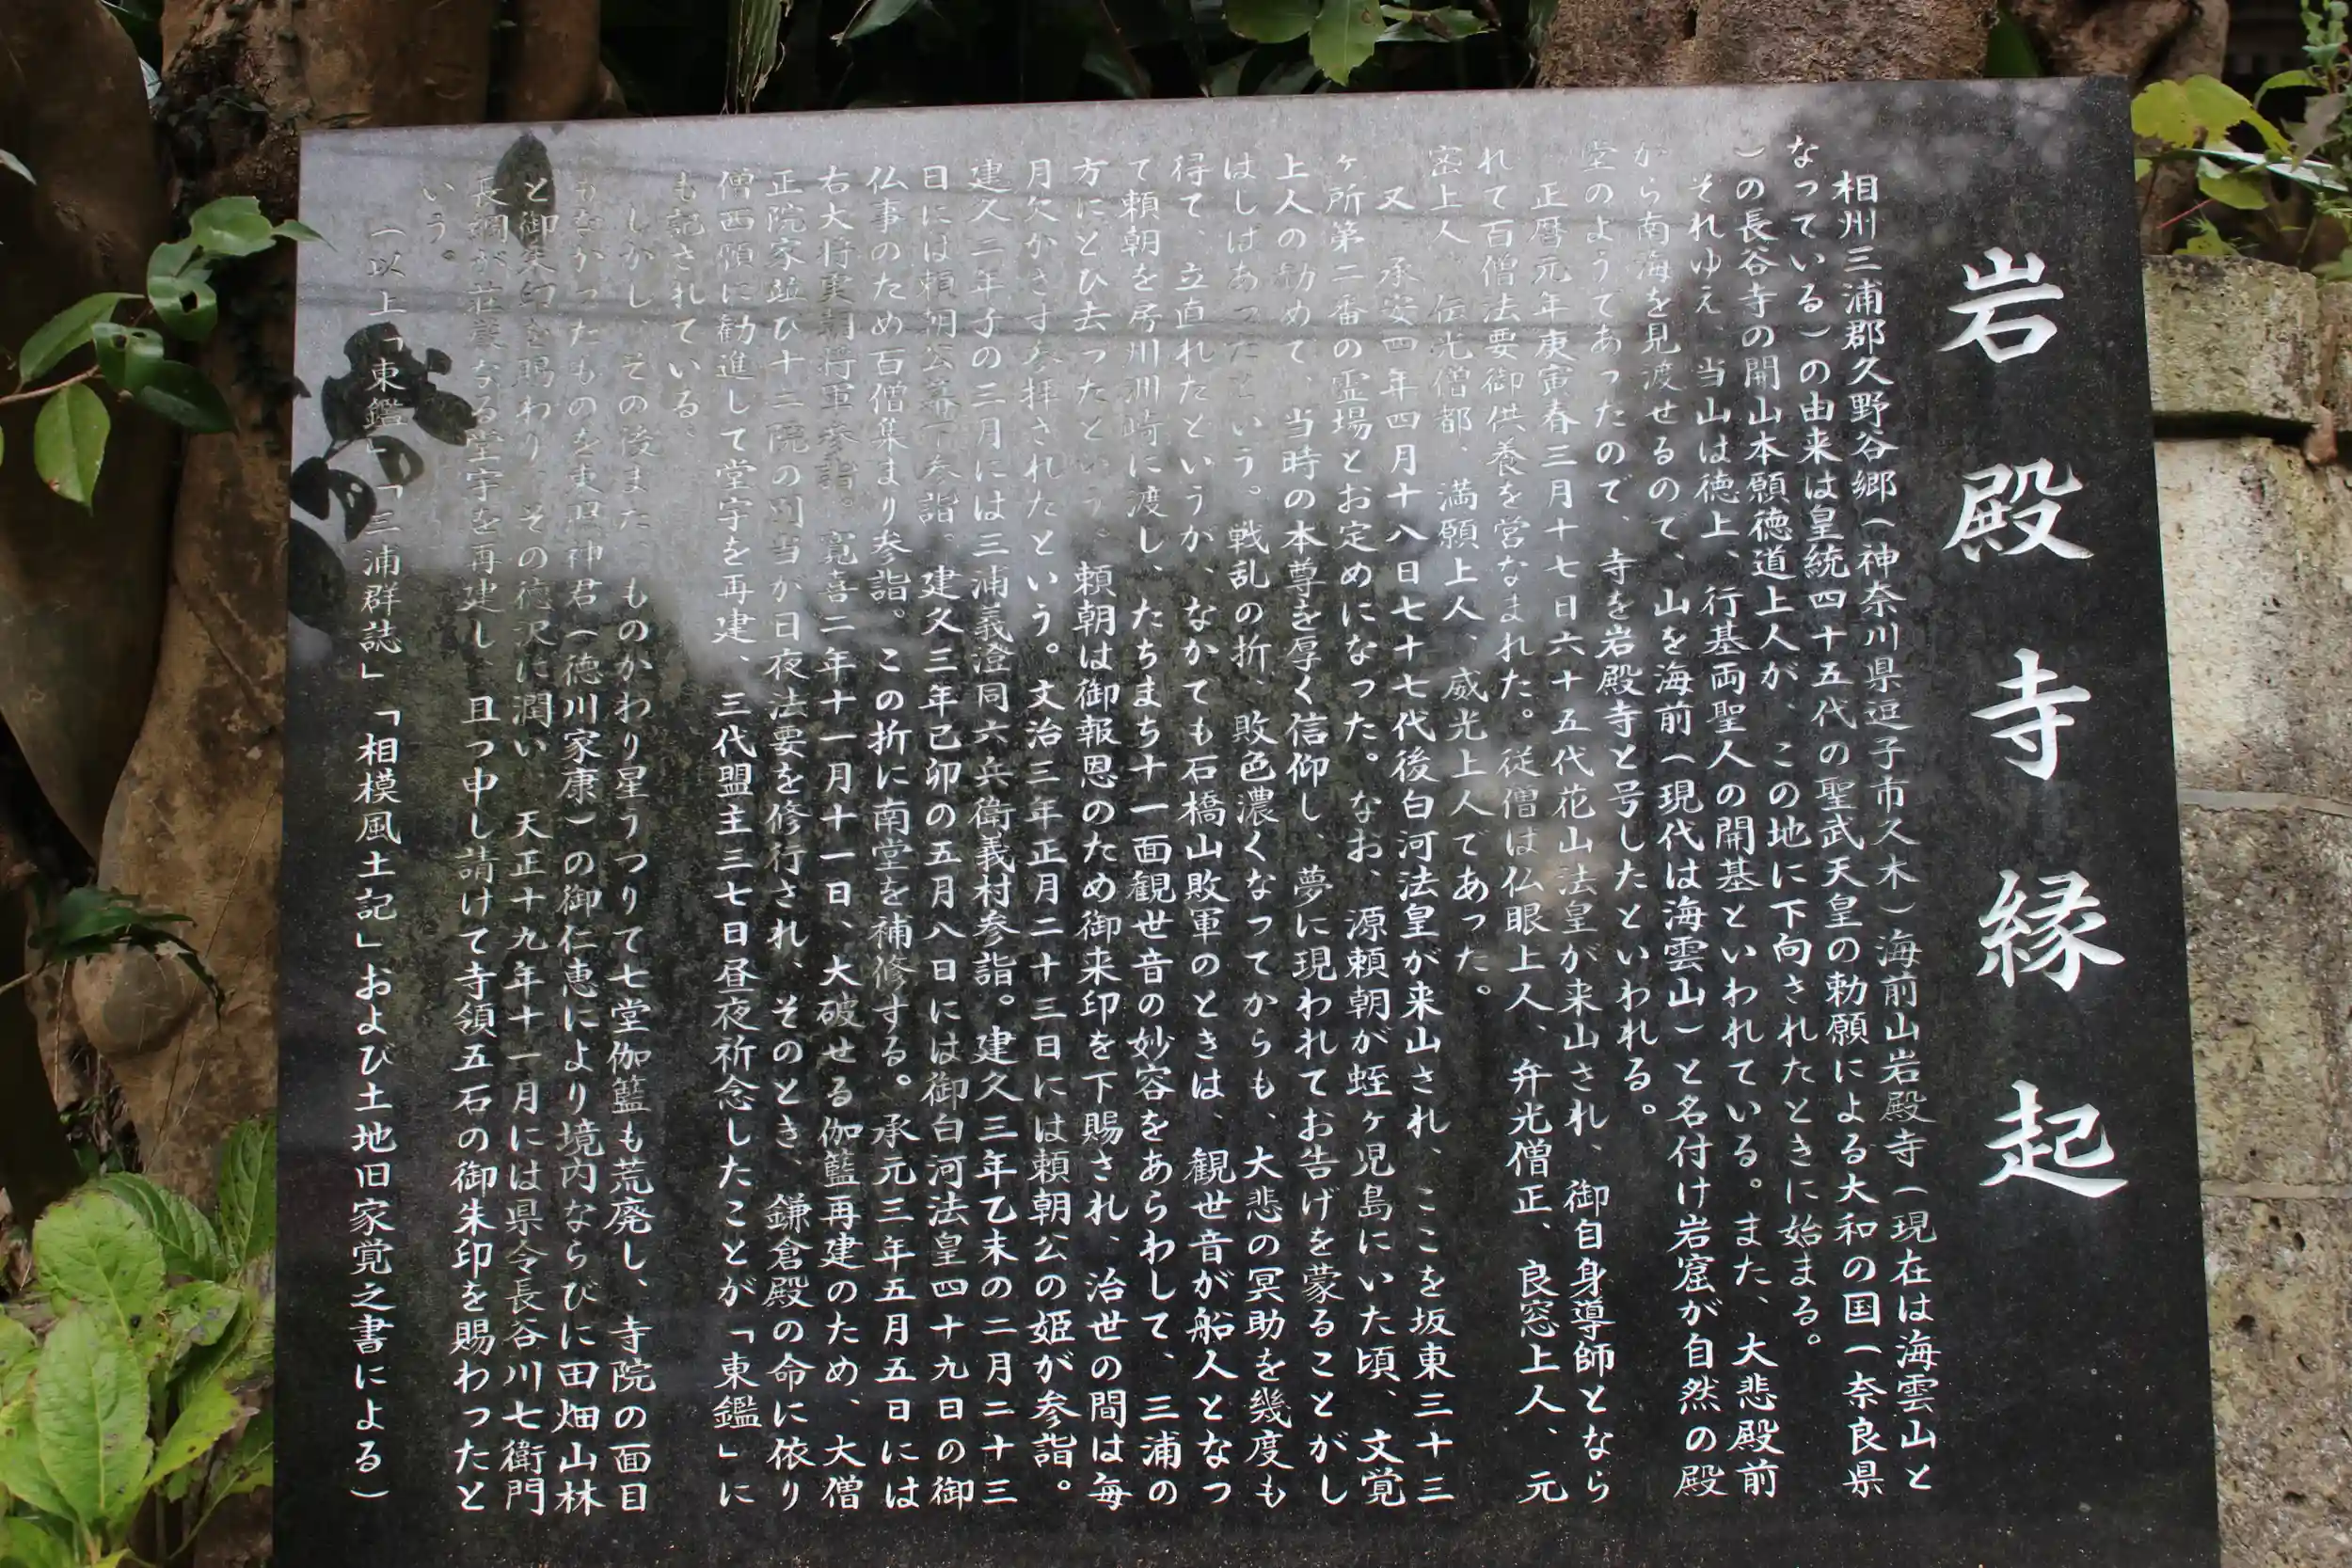 岩殿寺縁起
相州三浦郡久野谷郷(神奈川県逗子市久木)海前山岩殿寺(現在は海雲山と
なっている)の由来は皇統四十五代の聖武天皇の勅願による大和の国(奈良県
)の長谷寺の開山本願徳道上人が、この地に下向されたときに始まる。
それゆえ、当山は徳上、行基両聖人の開基といわれている。また、大悲殿前
から南海を見渡せるので、山を海前(現代は海雲山)と名付け岩窟が自然の殿
堂のようであったので、寺を岩殿寺と号したといわれる。
正暦元年庚寅春三月十七日六十五代花山法皇が来山され、御自身導師となら
れて百僧法要御供養を営なまれた。従僧は仏眼上人、弁光僧正、良窓上人、元
密上人、伝光僧都、満願上人、威光上人であった。
又、承安四年四月十八日七十七代後白河法皇が来山され、ここを坂東三十三
ヶ所第二番の霊場とお定めになった。なお、源頼朝が蛭ヶ児島にいた頃、文覚
上人の勧めで、当時の本尊を厚く信仰し、夢に現われてお告げを蒙ることがし
はしばあったという。戦乱の折、敗色濃くなってからも、大悲の冥助を幾度も
得て、立直れたというが、なかでも石橋山敗軍のときは、観世音が船人となっ
て頼朝を房川洲崎に渡し、たちまち十一面観世音の妙容をあらわして、三浦の
方にとび去ったという、頼朝は御報恩のため御来印を下賜され、治世の間は毎
月欠かさず参拝されたという。文治三年正月二十三日には頼朝公の姫が参詣。
建久二年子の三月には三浦義澄同六兵衛義村参詣。建久三年乙末の二月二十三
日には頼朝公幕下参詣。建久三年已卯の五月八日には御白河法皇四十九日の御
仏事のため百僧集まり参詣。この折に南堂を補修する。承元三年五月五日には
右大将実朝将軍参詣。寛喜二年十一月十一日、大破せる伽籃再建のため、大僧
正院家並び十二院の別当が日夜法要を修行され、そのとき、鎌倉殿の命に依り
僧西願に勧進して堂宇を再建、三代盟主三七日昼夜祈念したことが「東鑑」に
も記されている。
しかし、その後また、ものかわり星うつりて七堂伽籃も荒廃し、寺院の面目
もなかったものを東照神君(徳川家康)の御仁恵により境内ならびに田畑山林
と御朱印を賜わり、その徳沢に潤い、天正十九年十一月には県令長谷川七衛門
長綱が荘厳なる堂宇を再建し、且つ申し請けて寺領五石の御朱印を賜わったと
いう。
(以上「東鑑」「三浦群誌」「相模風土記」および土地旧家覚之書による)